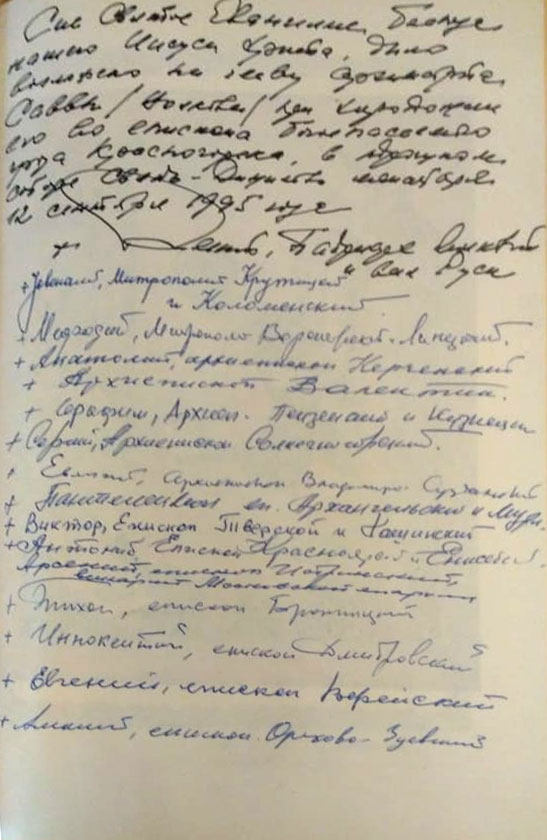 Сие Святое Евангелие Господа
нашего Иисуса Христа, было
возложено на главу архимандрита
Саввы / Волкова / при хиротонии
его во епископа
града Красногорска, в
соборе Свято- Данилова монастыря
12 сентября 1995 года
+ Патриарх Московский
и всея Руси
+ Ювеналий, Митрополит Крутицкий
и Коломенский.
+ Мефодий, Митрополит Воронежский и Липецкий.
+ Анатолий, архиепископ Керченский
+ Архиепископ Валентин.
+ Серафим, Архиеп. Пензенский и Кузнецкий
+ Сергий, Архиепископ Солнечногорский.
+ Евлогий, Архиепископ Владимиро- Суздальский
+ Пантелеимон еп. Архангельский и
+ Виктор, Епископ Тверской и Кашинский
+ Антоний, Епископ Красноярский и Енисейск.
Арсений, епископ Истринский,
викарий Московской епархии
+ Тихон, епископ Бронницкий
+ Иннокентий, епископ Дмитровский
+ Евгений, епископ Верейский
+ Алексий, епископ Орехово- Зуевский